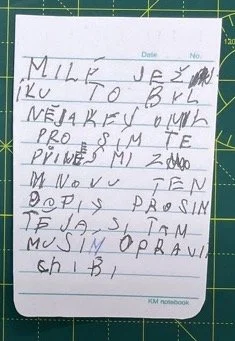 Date No.
MILÉ JEŽ
ÍKU TO BYL
NĚJAKEJ OMIL
PROSIM TE
PŘINES MI Z
MNOVU TEN
DOPIS PROSIM
TE JÁ SI TAM
MUSÍM OPRAVIT
ChIBI
KM notebook